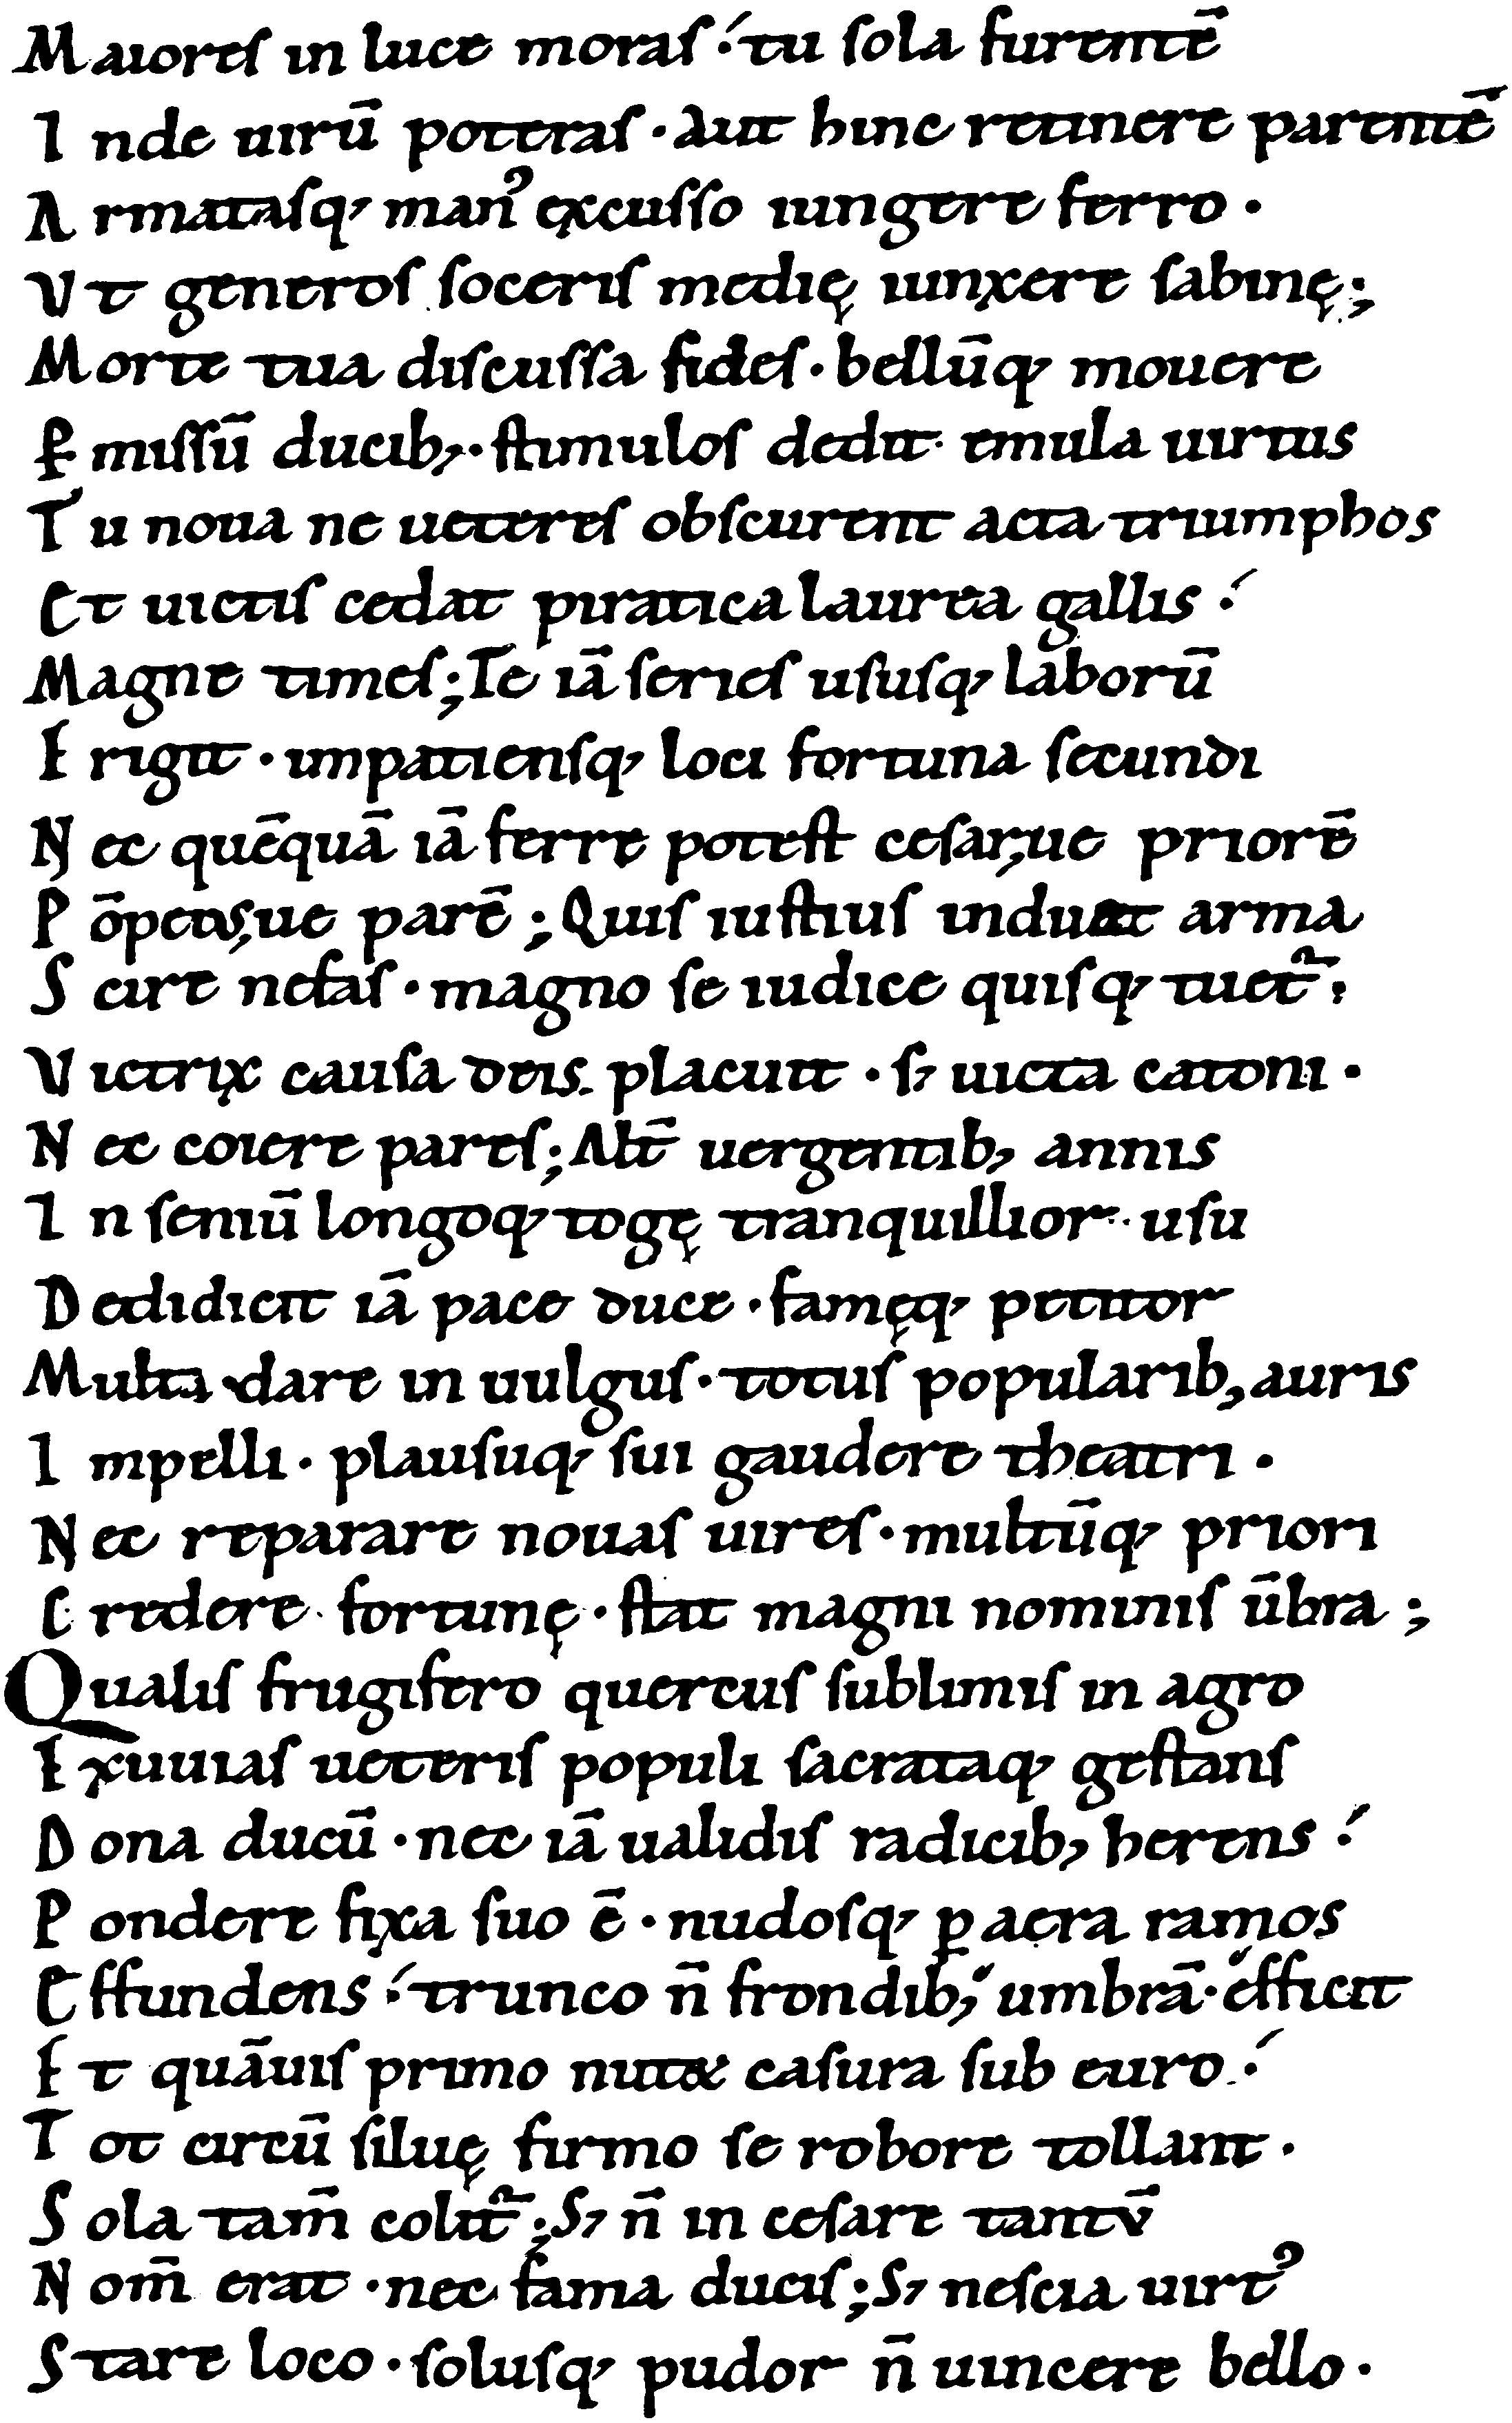 Maioreſ in luce moraſ ·́ tu ſola furentē
I nde uirū poteraſ · aut hinc retinere parentē
A rmataſq, manꝰ excuſſo iungere ferro ·
V t generoſ ſoceriſ medię iunxere ſabinę ;
M orte tua diſcuſſa fideſ · bellūq, mouere
Ꝑ miſſū ducib, · ſtimuloſ dedit · emula uirtus
T u noua ne uetereſ obſcurent acta triumphos
E t uictiſ cedat piratica laurea gallis ·́
Magne timeſ ; Te iā ſerieſ uſuſq, laborū
E rigit · impatienſq, loci fortuna ſecundi
N ec quēquā iā ferre poteſt ceſar,ue priorē
P ōpeius,ue parē ; Quiſ iuſtiuſ induat arma
S cire nefaſ · magno ſe iudice quiſq, tuet᷑ .
V ictrix cauſa deis placuit · ſ, uicta catoni ·
N ec coiere pareſ ; Alt̄ uergentib, annis
I n ſeniū longoq, togę tranquillior · uſu
D edidicit iā pace duce · famęq, petitor
Multa dare in uulguſ · totuſ popularib, auris
I mpelli · plauſuq, ſui gaudere theatri ·
N ec reparare nouaſ uireſ · multūq, priori
C redere fortunę · ſtat magni nominiſ ūbra ;
Qualiſ frugifero quercuſ ſublimiſ in agro
E xuuiaſ ueteriſ populi ſacrataq, geſtanſ
D ona ducū · nec iā ualidiſ radicib, herens ·́
P ondere fixa ſuo ē · nudoſq, ꝑ aera ramos
E ffundens ·́ trunco n̄ frondib,̋ umbrā · ̋efficit
E t quāuiſ primo nutet caſura ſub euro ·́
T ot circū ſiluę firmo ſe robore tollant ·
S ola tam̄ colit᷑ ; S, n̄ in ceſare tantv̄
N om̄ erat · nec fama duciſ ; S, neſcia uirtꝰ
S tare loco · ſoluſq, pudor n̄ uincere bello ·